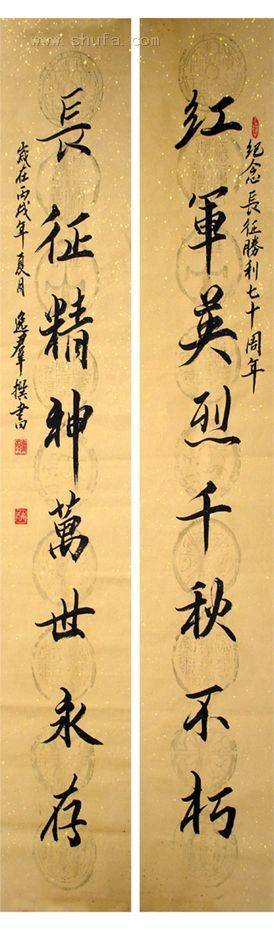 紀念長征勝利七十周年
紅軍英烈千秋不朽
長征精神萬世永存
歲在丙戌年夏月逸群撰書
www.shufa.com